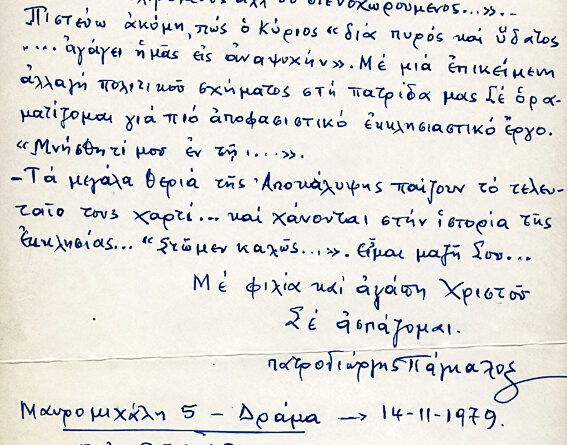 ἀλλ' οὐ στενοχωρούμενος...».-
Πιστεύω ἀκόμη, πώς ὁ Κύριος "διά πυρός καί ὕδατος
.... ἀγάγει ἡμᾶς εἰς ἀναψυχήν». Μέ μιά ἐπικείμενη
ἀλλαγή πολιτικοῦ σχήματος στή πατρίδα μας Σέ ὁρα-
ματίζομαι γιά πιό ἀποφασιστικό ἐκκλησιαστικό ἔργο.
"Μνήσθητί μου ἐν τῇ....».
-Τά μεγάλα θεριά τῆς Ἀποκάλυψης παίζουν τό τελευ-
ταῖο τους χαρτί... καί χάνονται στήν ἱστορία τῆς
ἐκκλησίας... "Στῶμεν καλῶς...». Εἶμαι μαζή Σου...
Μέ φιλία καί ἀγάπη Χριστοῦ
Σέ ἀσπάζομαι.
πατρογιώργης Πάγκαλος
Μαυρομιχάλη 5 - Δράμα → 14-11-1979.